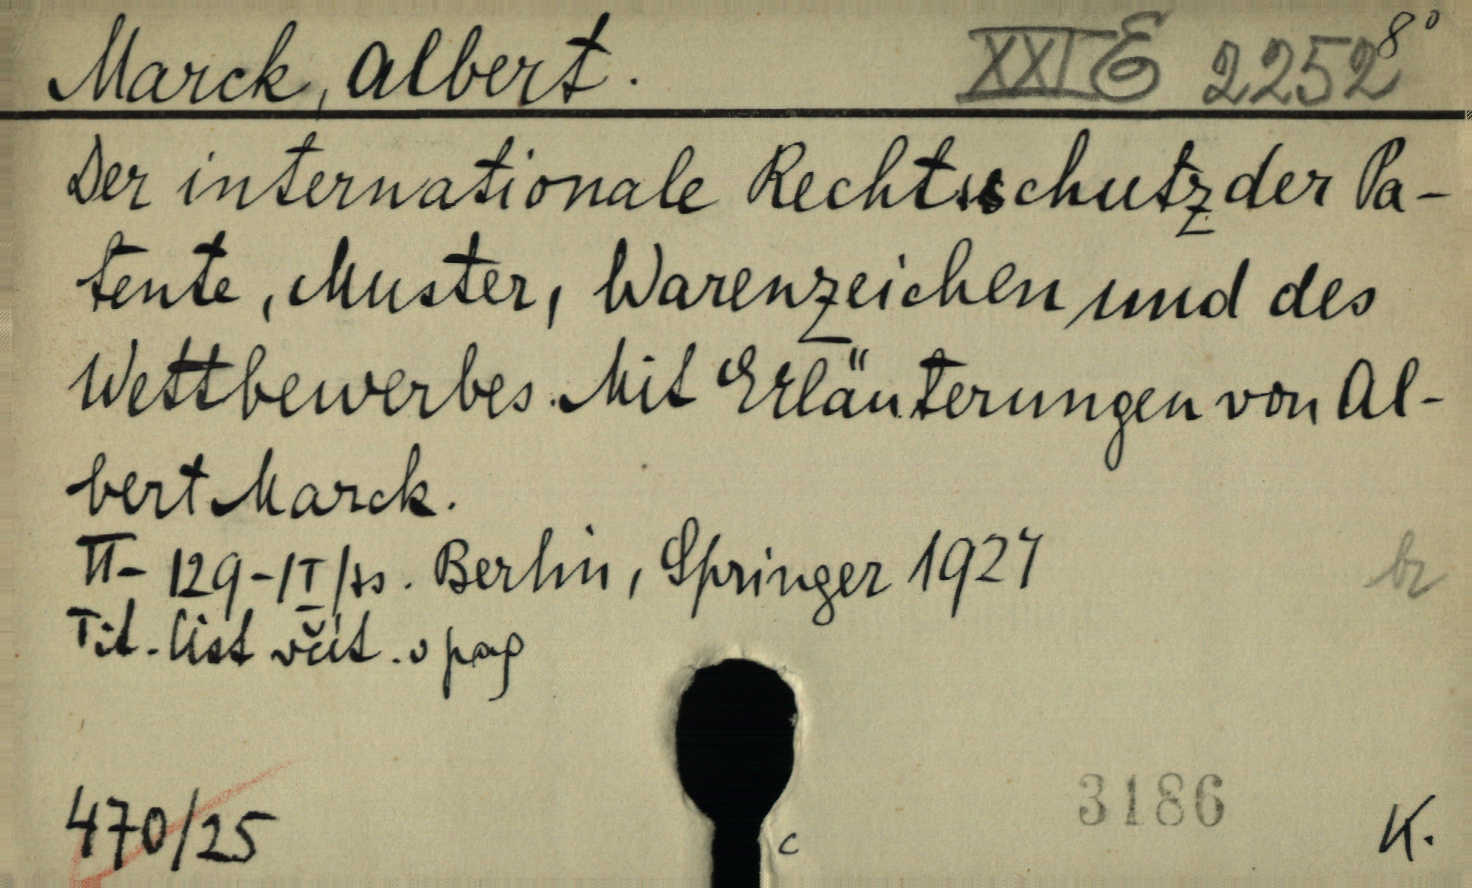 Marck, Albert. XXI E 2252 8°
Der internationale Rechtsschutz der Pa-
tente, Muster, Warenzeichen und des
Wettbewerbes. Mit Erläuterungen von Al-
bert Marck.
II- 129-/I/ss. Berlin, Springer 1927 br
Tit. list včít. v pag
470/25 3186 K.
c